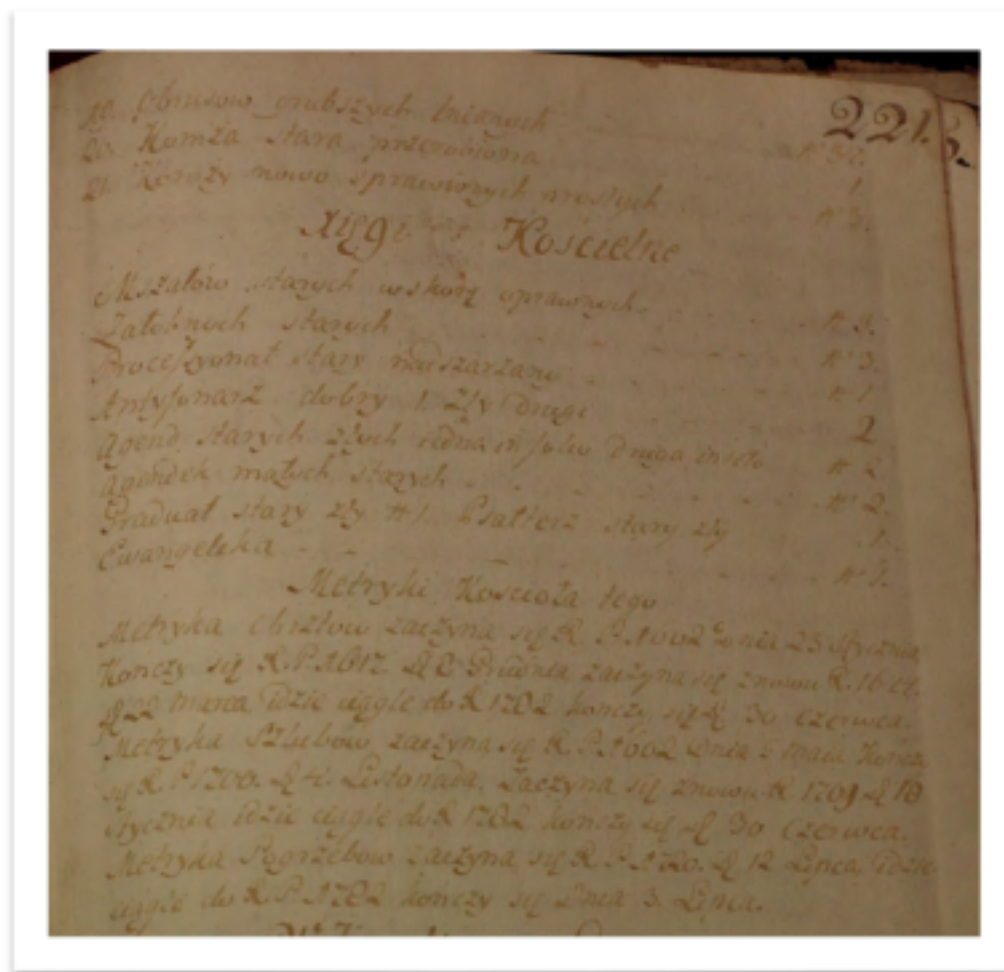 19. Obrusow grubszych lnianych
221.
20. Komża stara przerobiona 1.
21. Komży nowo sprawionych prostych N 3.
Xięgi Kościelne
Mszałow starych w skorę oprawnych N 3.
Żałobnych starych N 3.
Processyonał stary nadszarzany N 1
Antyfonarz dobry 1. zły drugi 2
Agend starych złych iedna in folio druga in N 2
Agendek małych starych N 2.
Graduał stary zły N 1. Psałterz stary zły 1.
Ewangeliczka N 1.
Metryki Kościoła tego
Metryka Chrztow zaczyna się R. P. 1602 dnia 23 Stycznia
Kończy się R. P. 1617. D 2 Grudnia zaczyna się znowu R.
D 22 marca idzie ciągle do R 1782 kończy się D 30 Czerwca.
Metryka Szlubow zaczyna się R. P. 1602 Dnia 5 maia Kończy
się R. P. 1700. D 4. Listopada. Zaczyna się znowu R 1709 D 18
Stycznia idzie ciągle do R 1782 kończy się D 30 Czerwca.
Metryka Pogrzebow zaczyna się R. P. 1720. D 12 Lipca, idzie
ciągle do R. P. 1782 kończy się Dnia 3. Lipca.